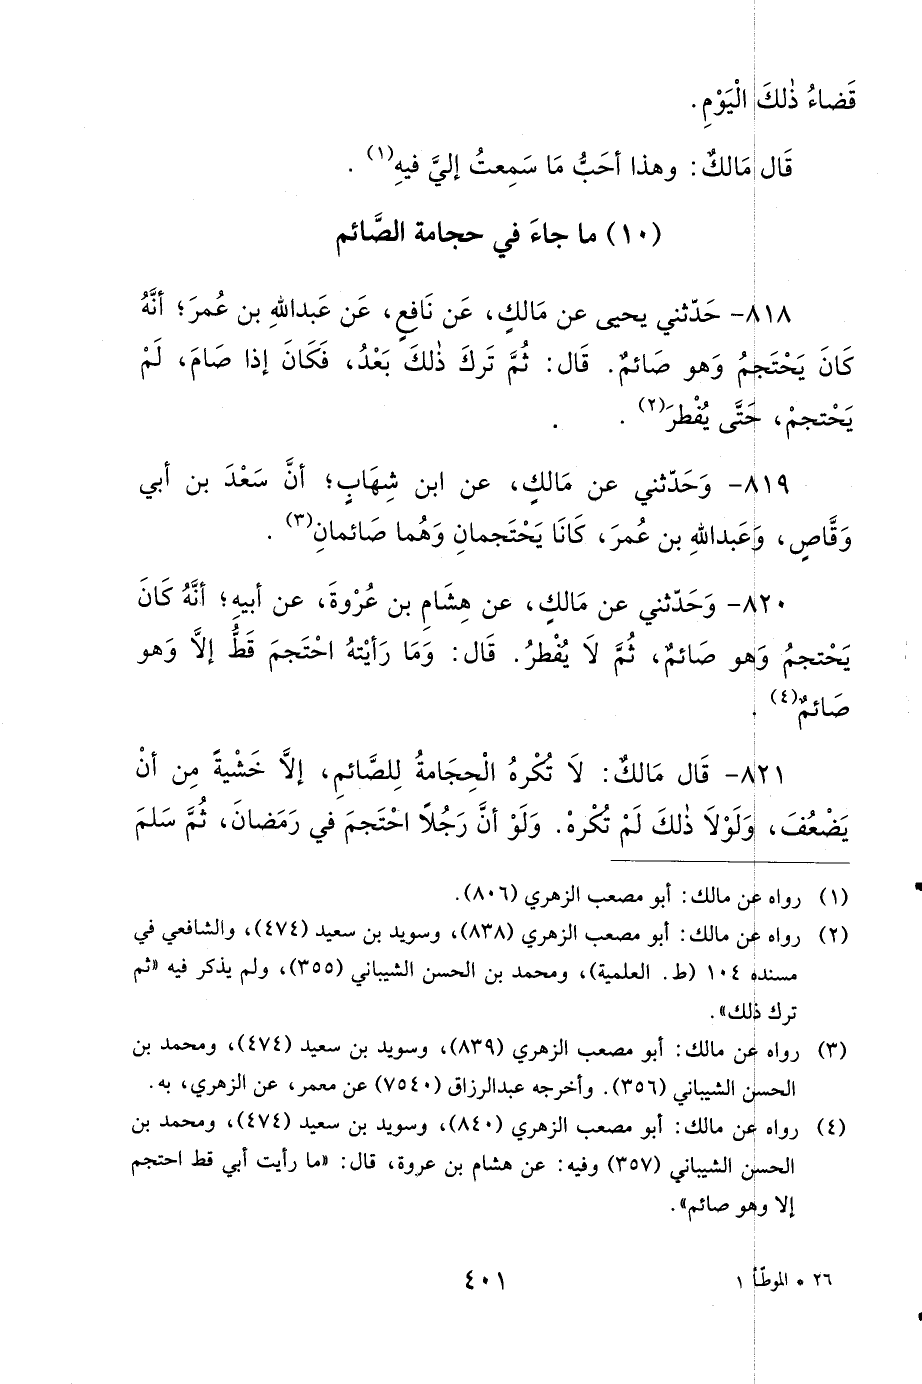 قَضاءُ ذٰلكَ الْيَوْمِ.
قَال مَالكٌ: وهذا أحَبُّ مَا سَمِعتُ إليَّ فيهِ(١).
(١٠) ما جاءَ في حجامة الصَّائم
٨١٨- حَدّثني يحيى عن مَالكٍ، عَن نَافعٍ، عَن عَبدالله بن عُمرَ؛ أنَّهُ
كَانَ يَحْتَجمُ وَهو صَائمٌ. قَال: ثُمَّ تَركَ ذٰلكَ بَعْدُ، فَكَانَ إذا صَامَ، لَمْ
يَحْتجمْ، حَتَّى يُفْطرَ(٢).
٨١٩- وَحَدّثني عن مَالكٍ، عن ابن شِهَابٍ؛ أنَّ سَعْدَ بن أبي
وَقَّاصٍ، وَعَبدالله بن عُمرَ، كَانَا يَحْتَجمانِ وَهُما صَائمان(٣).
٨٢٠- وَحَدّثني عن مَالكٍ، عن هِشَامِ بن عُرْوةَ، عن أبيهِ؛ أنَّهُ كَانَ
يَحْتجمُ وَهو صَائمٌ، ثُمَّ لاَ يُفْطرُ. قَال: وَمَا رَأيْتهُ احْتجمَ قَطُّ إلاَّ وَهو
صَائمٌ(٤).
٨٢١- قَال مَالكٌ: لاَ تُكْرهُ الْحِجَامةُ لِلصَّائمِ، إلاَّ خَشْيةً مِن أنْ
يَضْعُفَ، وَلَوْلاَ ذٰلكَ لَمْ تُكْرهْ. وَلَوْ أنَّ رَجُلاً احْتَجمَ في رَمَضانَ، ثُمَّ سَلمَ
(١) رواه عن مالك: أبو مصعب الزهري (٨٠٦).
(٢) رواه عن مالك: أبو مصعب الزهري (٨٣٨)، وسويد بن سعيد (٤٧٤)، والشافعي في
مسنده ١٠٤ (ط. العلمية)، ومحمد بن الحسن الشيباني (٣٥٥)، ولم يذكر فيه «ثم
ترك ذلك».
(٣) رواه عن مالك: أبو مصعب الزهري (٨٣٩)، وسويد بن سعيد (٤٧٤)، ومحمد بن
الحسن الشيباني (٣٥٦). وأخرجه عبدالرزاق (٧٥٤٠) عن معمر، عن الزهري، به.
(٤) رواه عن مالك: أبو مصعب الزهري (٨٤٠)، وسويد بن سعيد (٤٧٤)، ومحمد بن
الحسن الشيباني (٣٥٧) وفيه: عن هشام بن عروة، قال: «ما رأيت أبي قط احتجم
إلا وهو صائم».
٢٦ * الموطّأ ١
٤٠١